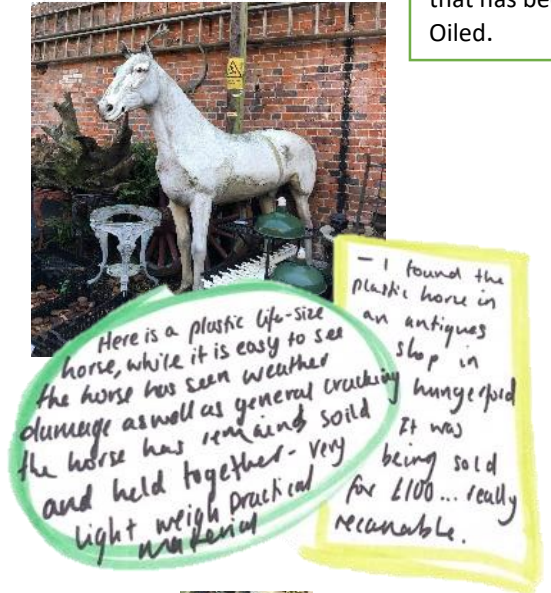 that has be
Oiled.
Here is a plastic life-size
horse, while it is easy to see
the horse has seen weather
dumage aswell as general cracking
the horse has remaind soild
and held together - very
light weigh practical
material
- I found the
plastic horse in
an antiques
shop in
hungerford
It was
being sold
for £100... really
recanable.